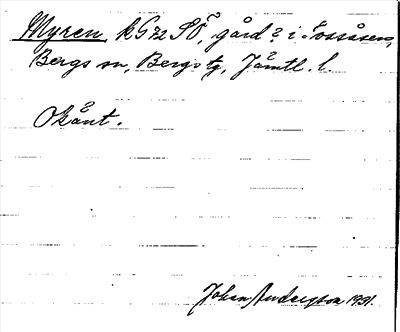 Myren k672 SÖ, gård? i Fossåsen,
Bergs sn, Bergs tg, Jämtl. l.
Okänt.
Johan Anderzson 1931.